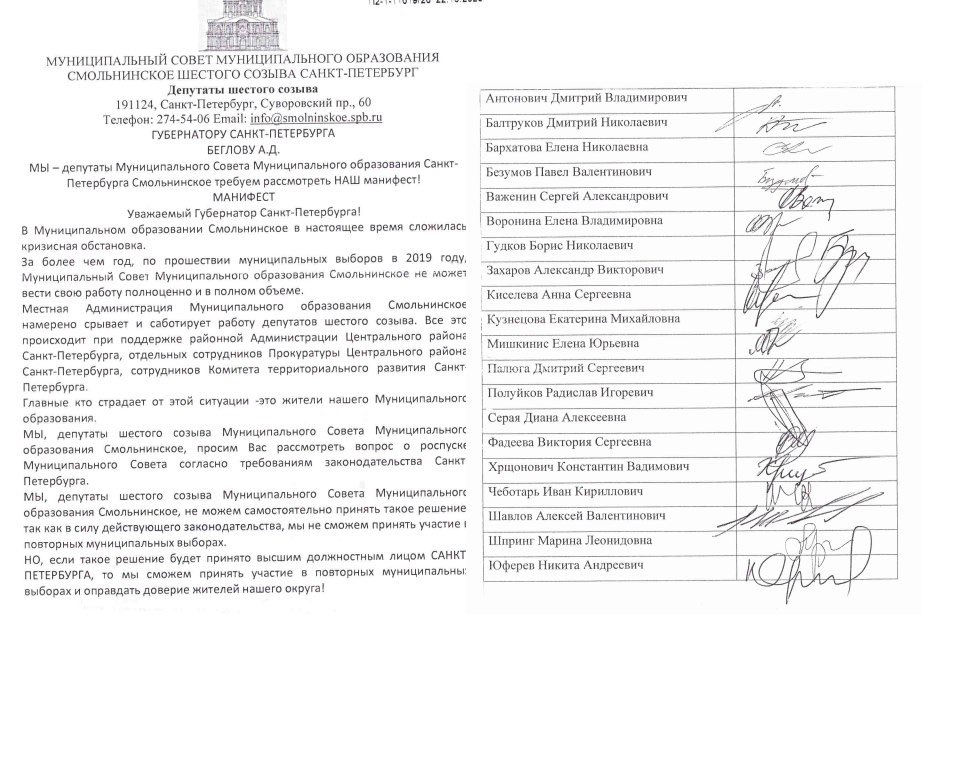 МУНИЦИПАЛЬНЫЙ СОВЕТ МУНИЦИПАЛЬНОГО ОБРАЗОВАНИЯ
СМОЛЬНИНСКОЕ ШЕСТОГО СОЗЫВА САНКТ-ПЕТЕРБУРГ
Депутаты шестого созыва
191124, Санкт-Петербург, Суворовский пр., 60
Телефон: 274-54-06 Email: info@smolninskoe.spb.ru
ГУБЕРНАТОРУ САНКТ-ПЕТЕРБУРГА
БЕГЛОВУ А.Д.
МЫ – депутаты Муниципального Совета Муниципального образования Санкт-
Петербурга Смольнинское требуем рассмотреть НАШ манифест!
МАНИФЕСТ
Уважаемый Губернатор Санкт-Петербурга!
В Муниципальном образовании Смольнинское в настоящее время сложилась
кризисная обстановка.
За более чем год, по прошествии муниципальных выборов в 2019 году,
Муниципальный Совет Муниципального образования Смольнинское не может
вести свою работу полноценно и в полном объеме.
Местная Администрация Муниципального образования Смольнинское
намерено срывает и саботирует работу депутатов шестого созыва. Все это
происходит при поддержке районной Администрации Центрального района
Санкт-Петербурга, отдельных сотрудников Прокуратуры Центрального района
Санкт-Петербурга, сотрудников Комитета территориального развития Санкт-
Петербурга.
Главные кто страдает от этой ситуации -это жители нашего Муниципального
образования.
МЫ, депутаты шестого созыва Муниципального Совета Муниципального
образования Смольнинское, просим Вас рассмотреть вопрос о роспуске
Муниципального Совета согласно требованиям законодательства Санкт
Петербурга.
МЫ, депутаты шестого созыва Муниципального Совета Муниципального
образования Смольнинское, не можем самостоятельно принять такое решение
так как в силу действующего законодательства, мы не сможем принять участие
повторных муниципальных выборах.
НО, если такое решение будет принято высшим должностным лицом САНКТ
ПЕТЕРБУРГА, то мы сможем принять участие в повторных муниципальных
выборах и оправдать доверие жителей нашего округа!
Антонович Дмитрий Владимирович
Балтруков Дмитрий Николаевич
Бархатова Елена Николаевна
Безумов Павел Валентинович
Важенин Сергей Александрович
Воронина Елена Владимировна
Гудков Борис Николаевич
Захаров Александр Викторович
Киселева Анна Сергеевна
Кузнецова Екатерина Михайловна
Мишкинис Елена Юрьевна
Палюга Дмитрий Сергеевич
Полуйков Радислав Игоревич
Серая Диана Алексеевна
Фадеева Виктория Сергеевна
Хрщонович Константин Вадимович
Чеботарь Иван Кириллович
Шавлов Алексей Валентинович
Шпринг Марина Леонидовна
Юферев Никита Андреевич